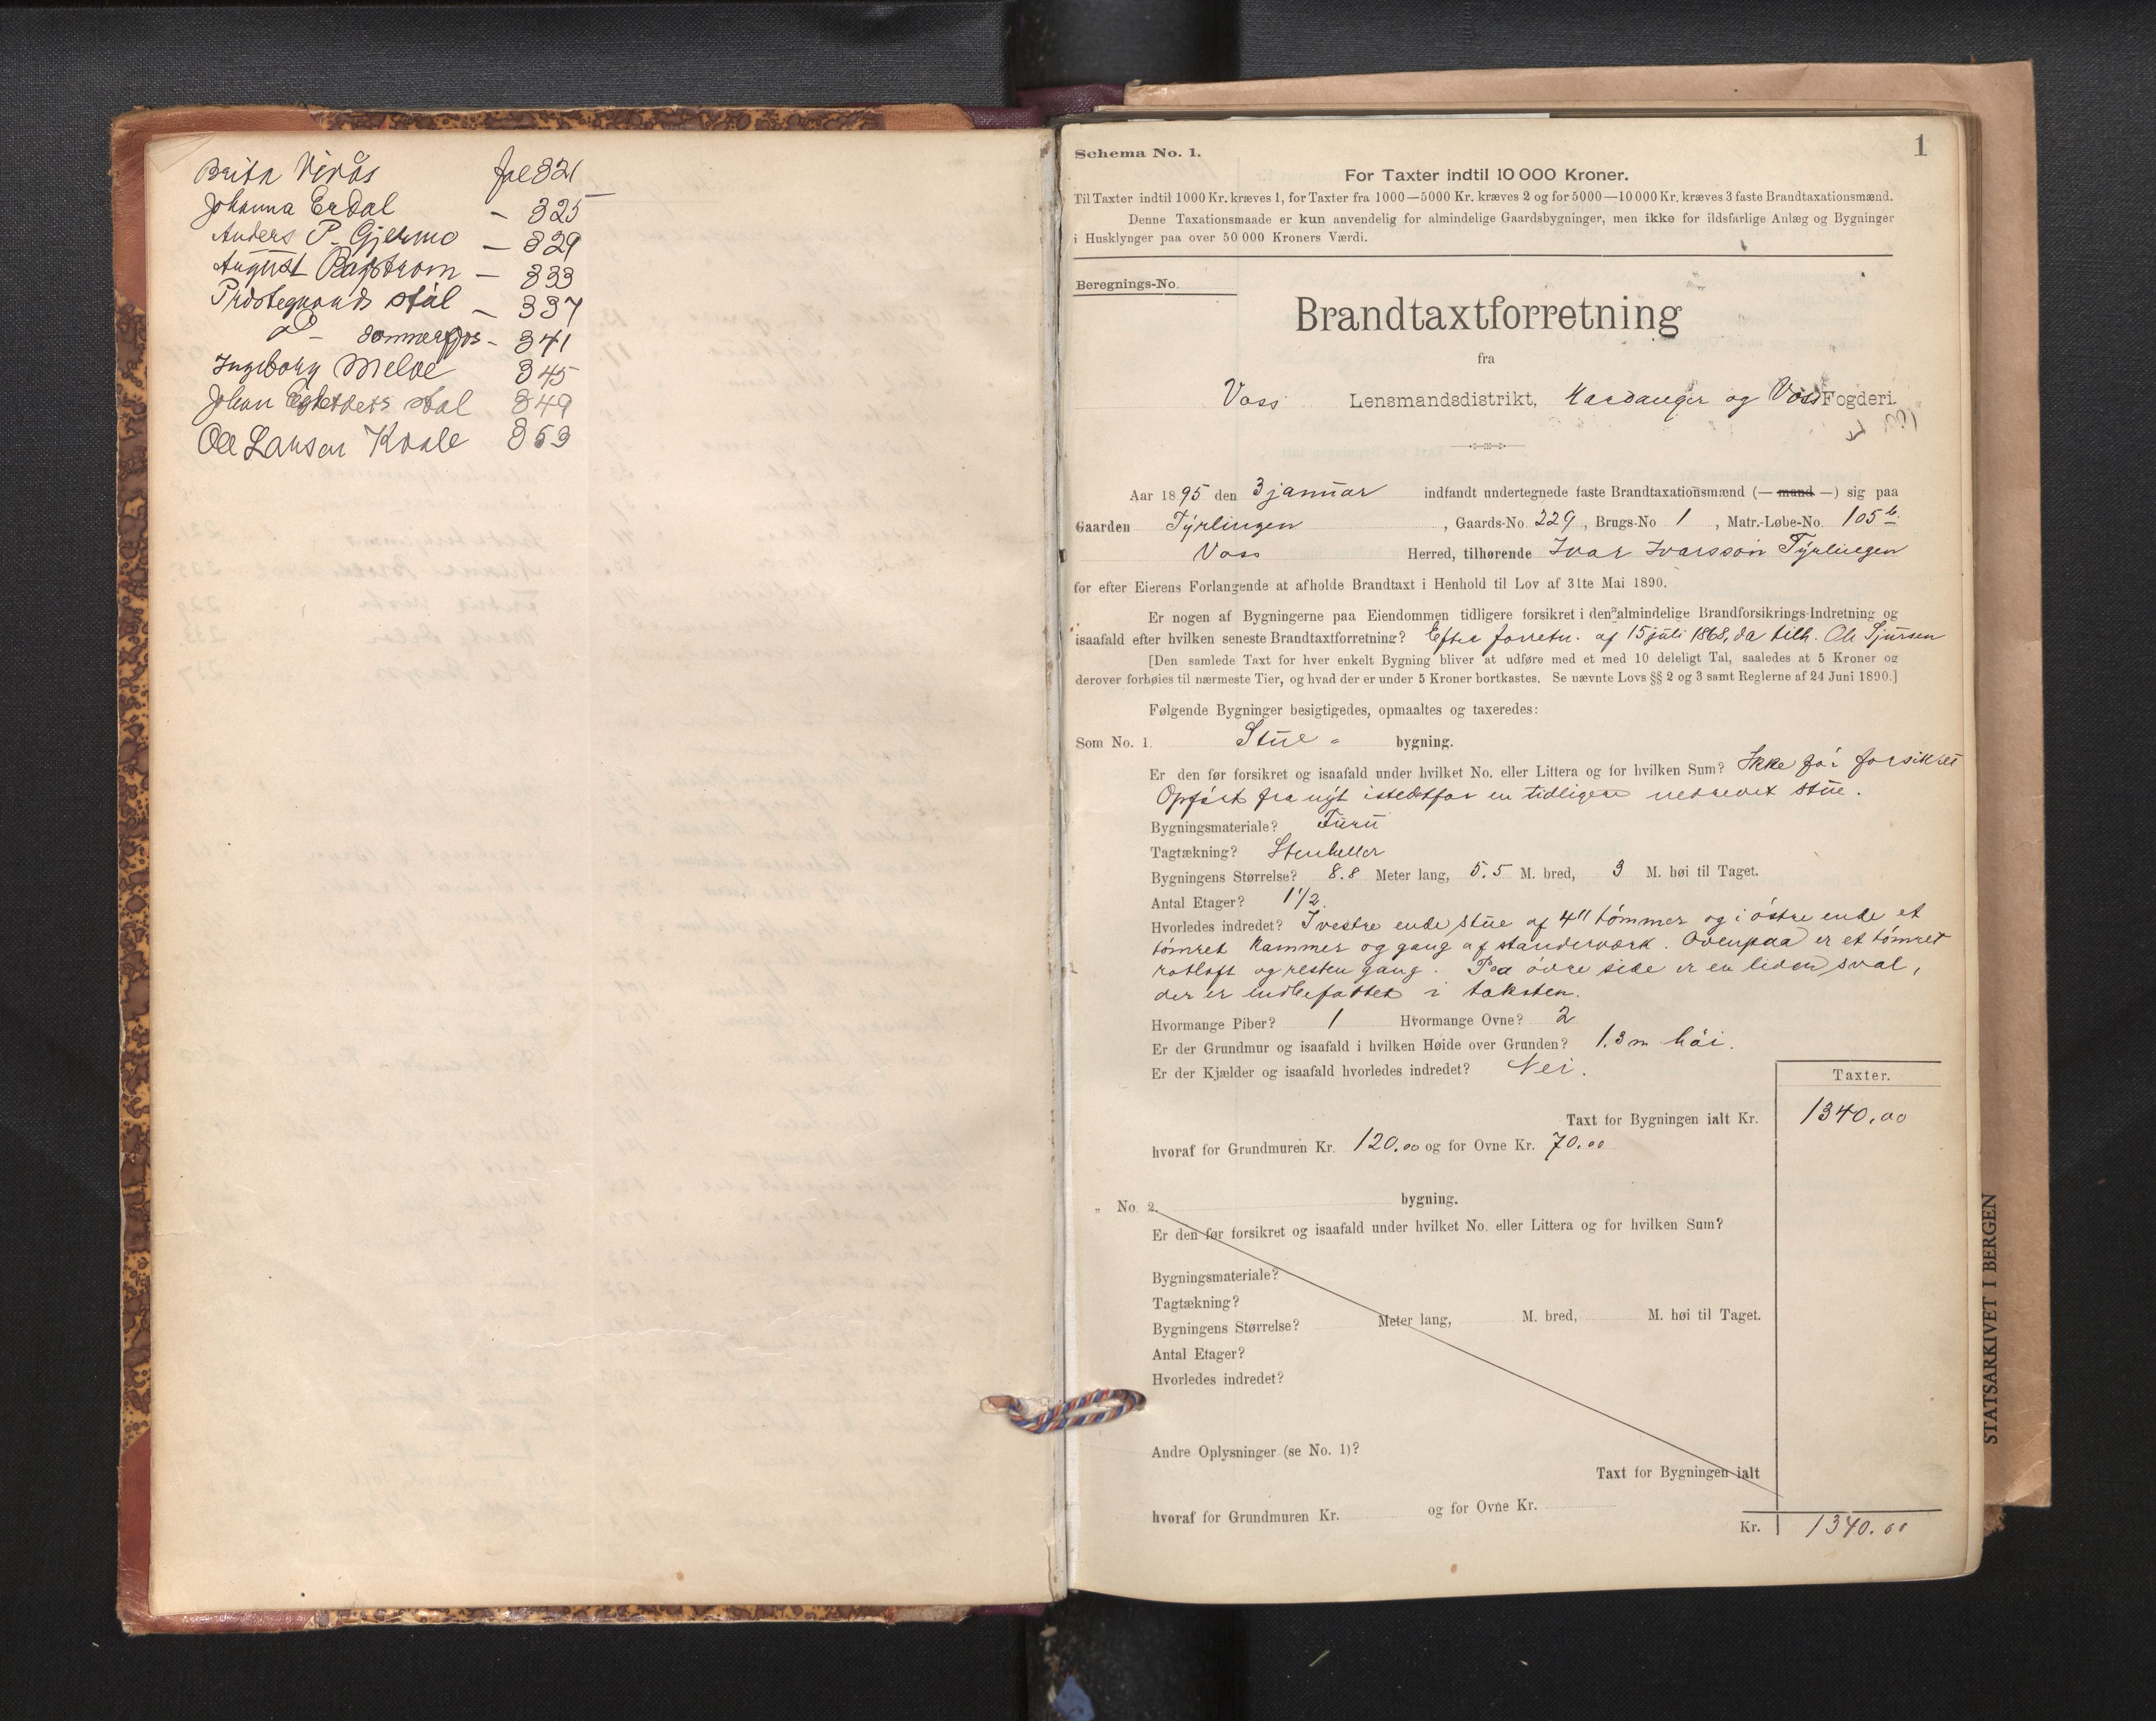 Brita Virås fol 321
Johanna Erdal - 325
Anders P. Gjermo - 329
August - 333
Prestegaards stål - 337
do - - 341
Ingeborg Meloe 345
Johan 349
Ole Larsen Kvale 353
1
Schema No. 1.
For Taxter indtil 10 000 Kroner.
Til Taxter indtil 1000 Kr. kræves 1, for Taxter fra 1000—5000 Kr. kræves 2 og for 5000—10 000 Kr. kræves 3 faste Brandtaxationsmænd.
Denne Taxationsmaade er kun anvendelig for almindelige Gaardsbygninger, men ikke for ildsfarlige Anlæg og Bygninger
i Husklynger paa over 50 000 Kroners Værdi.
Beregnings-No.
Brandtaxtforretning
fra
Voss Lensmandsdistrikt, Hardanger og Voss Fogderi.
Aar 1895 den 3 januar indfandt undertegnede faste Brandtaxationsmænd (— mand —) sig paa
Gaarden Tyrlingen, Gaards-No. 229, Brugs-No 1, Matr.-Løbe-No. 105 b.
Voss Herred, tilhørende Ivar Ivarsson Tyrlingen
for efter Eierens Forlangende at afholde Brandtaxt i Henhold til Lov af 31te Mai 1890.
Er nogen af Bygningerne paa Eiendommen tidligere forsikret i den almindelige Brandforsikrings-Indretning og
isaafald efter hvilken seneste Brandtaxtforretning? Efter forretn. af 15 juli 1868, da tilh. Ole Sjursen
[Den samlede Taxt for hver enkelt Bygning bliver at udføre med et med 10 deleligt Tal, saaledes at 5 Kroner og
derover forhøies til nærmeste Tier, og hvad der er under 5 Kroner bortkastes. Se nævnte Lovs §§ 2 og 3 samt Reglerne af 24 Juni 1890.]
Følgende Bygninger besigtigedes, opmaaltes og taxeredes:
Som No. 1. Stue - bygning.
Er den før forsikret og isaafald under hvilket No. eller Littera og for hvilken Sum? Ikke før forsikret
Opført fra nyt istedetfor en tidligere nedrevet stue.
Bygningsmateriale? Furu
Tagtækning? Stenheller
Bygningens Størrelse? 8.8 Meter lang, 5.5 M. bred, 3 M. høi til Taget.
Antal Etager? 1 1/2.
Hvorledes indredet? I vestre ende stue af 4" tømmer og i østre ende et
tømret kammer og gang af standerværk. Ovenpaa er et tømret
rotloft og resten gang. Paa øvre side er en liden sval,
der er indbefattet i taksten.
Hvormange Piber? 1 Hvormange Ovne? 2
Er der Grundmur og isaafald i hvilken Høide over Grunden? 1.3 m høi.
Er der Kjælder og isaafald hvorledes indredet? Nei.
Taxter.
Taxt for Bygningen ialt Kr. 1340.00
hvoraf for Grundmuren Kr. 120.00 og for Ovne Kr. 70.00
„ No. 2. bygning.
Er den før forsikret og isaafald under hvilket No. eller Littera og for hvilken Sum?
Bygningsmateriale?
Tagtækning?
Bygningens Størrelse? Meter lang, M. bred, M. høi til Taget.
Antal Etager?
Hvorledes indredet?
Andre Oplysninger (se No. 1)?
Taxt for Bygningen ialt
hvoraf for Grundmuren Kr. og for Ovne Kr.
Kr. 1340.00
STATSARKIVET I BERGEN